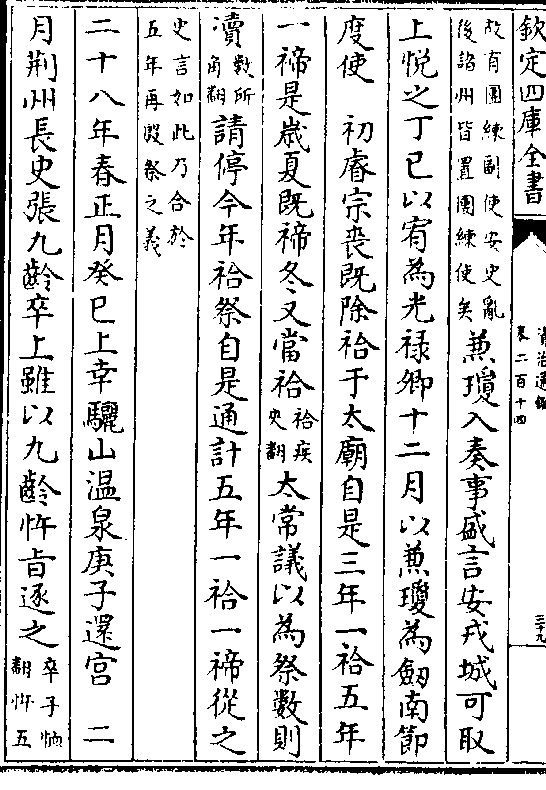 欽定四庫全書
資治通鑑
卷二百十四
三十九
故有團練副使安史亂
後諸州皆置團練使矣
兼瓊入奏事盛言安戎城可取
上悅之丁巳以宥為光禄卿十二月以兼瓊為劒南節
度使 初睿宗喪既除祫于太廟自是三年一祫五年
一禘是歲夏既禘冬又當祫
祫疾
史翻
太常議以為祭數則
瀆
數所
角翻
請停今年祫祭自是通計五年一祫一禘從之
史言如此乃合於
五年再殷祭之義
二十八年春正月癸巳上幸驪山温泉庚子還宫 二
月荆州長史張九齡卒上雖以九齡忤旨逐之
卒子恤
翻忤五